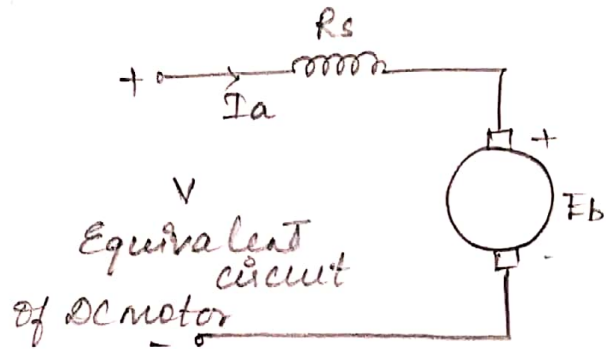 Rs
+
Ia
+
V
Eb
-
Equivalent
circuit
of DC motor
-